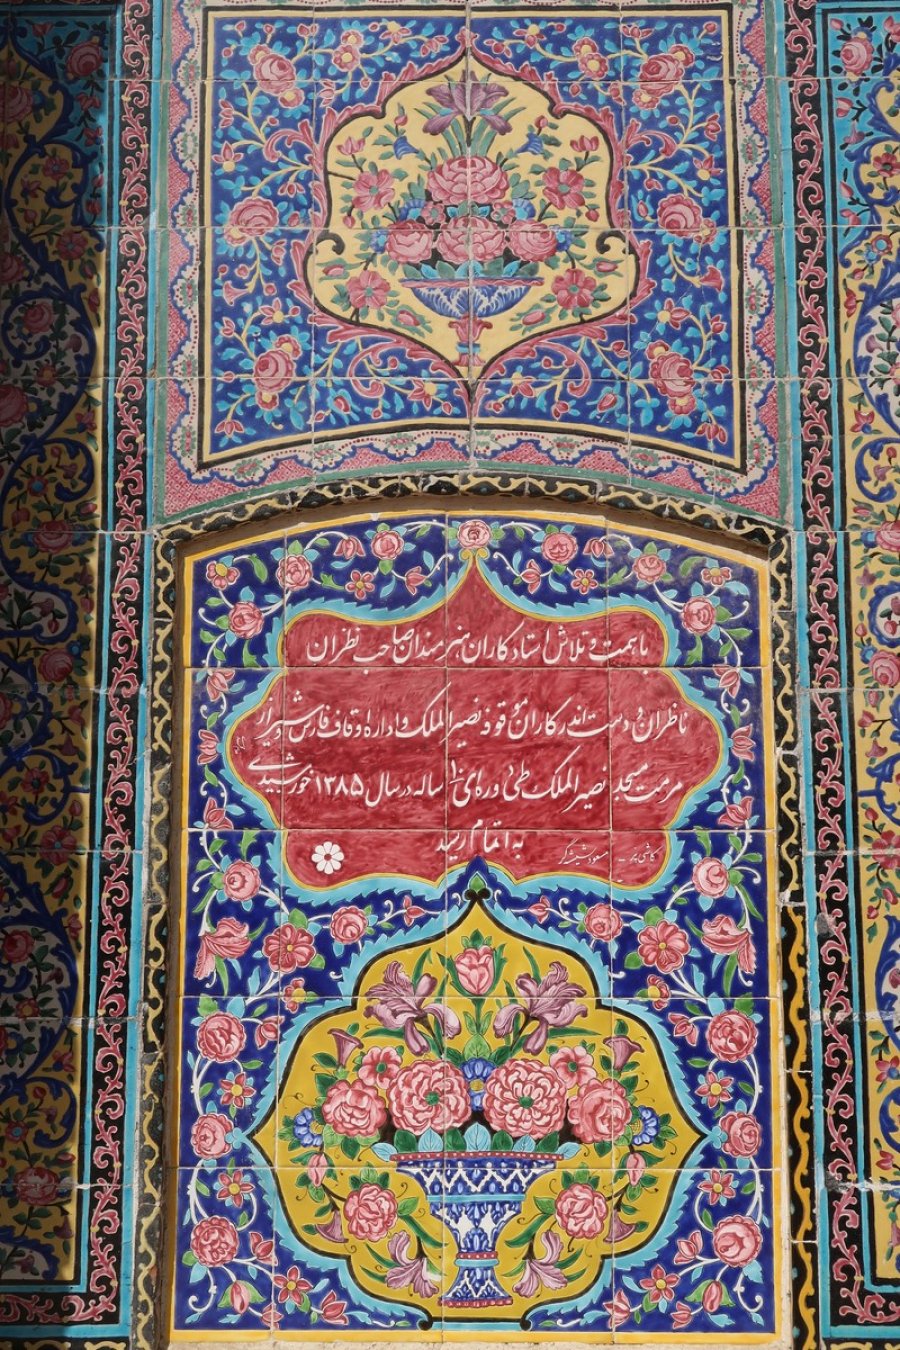 با همت و تلاش استادکاران هنرمندان صاحب نظران
ناظران و دست اندرکاران موقوفه نصیرالملک و اداره اوقاف فارس و شیراز
مرمت مسجد نصیرالملک طی دوره ای ۱۰ ساله در سال ۱۳۸۵ خورشیدی
به اتمام رسید
کاشی پز - مسعود شیشه گر